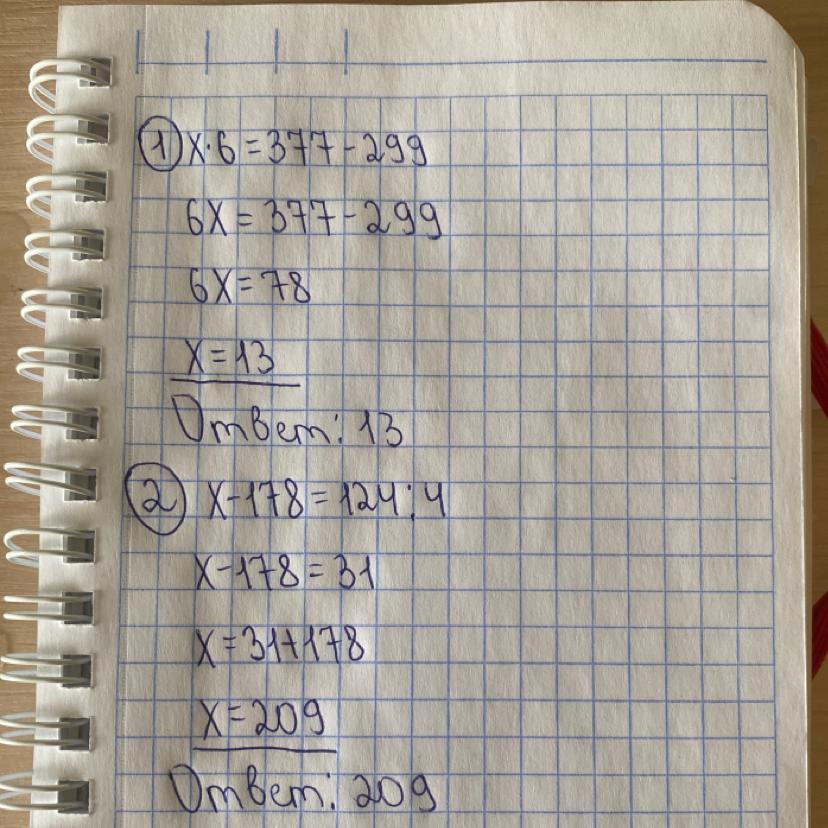 ① x·6=377-299
6x=377-299
6x=78
x=13
Ответ: 13
② x-178=124:4
x-178=31
x=31+178
x=209
Ответ: 209